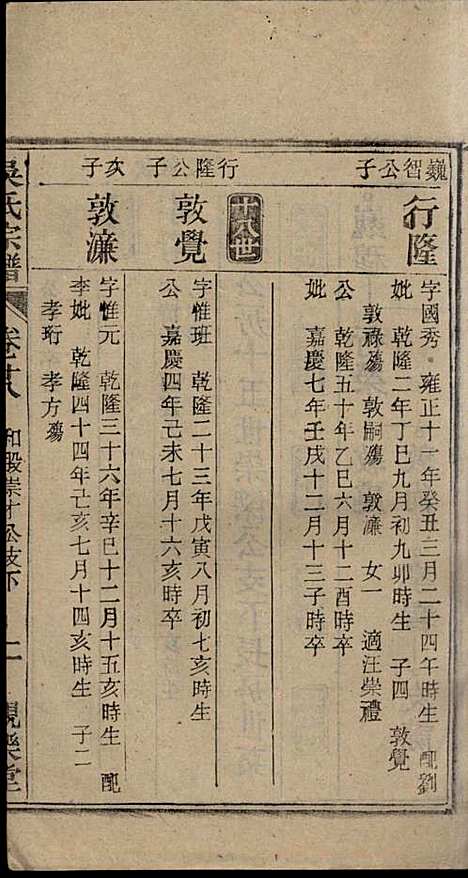 巍智公子
行隆
字國秀 雍正十一年癸丑三月二十四午時生 配劉
妣 乾隆二年丁巳九月初九卯時生 子四 敦覺
敦祿殤 敦嗣殤 敦濂 女一 適汪崇禮
公 乾隆五十年乙巳六月十二酉時卒
妣 嘉慶七年壬戌十二月十三子時卒
十八世
行隆公子
敦覺
字惟班 乾隆二十三年戊寅八月初七亥時生
公 嘉慶四年己未七月十六亥時卒
次子
敦濂
字惟元 乾隆三十六年辛巳十二月十五亥時生 配
李妣 乾隆四十四年己亥七月十四亥時生 子二
孝珩 孝方殤
吳氏宗譜 卷十八 和毅崇才公支下 二 親樂堂